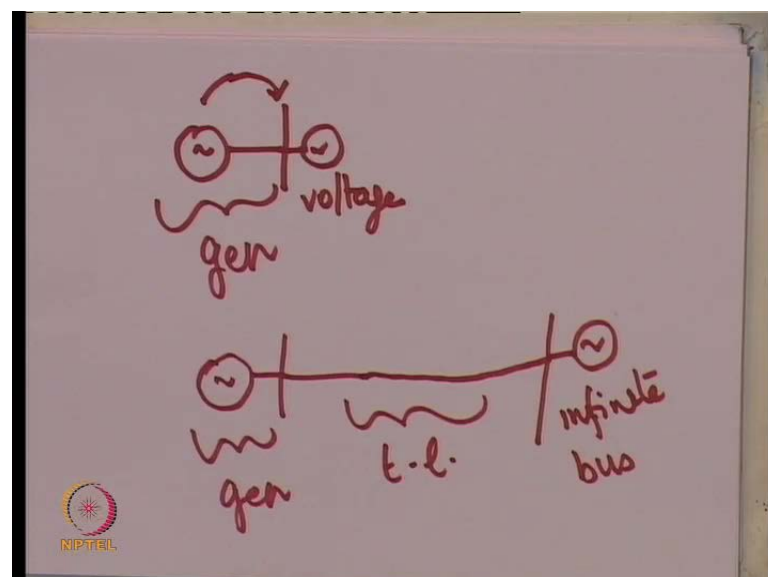 voltage
gen
gen
t.l.
infinite
bus
NPTEL